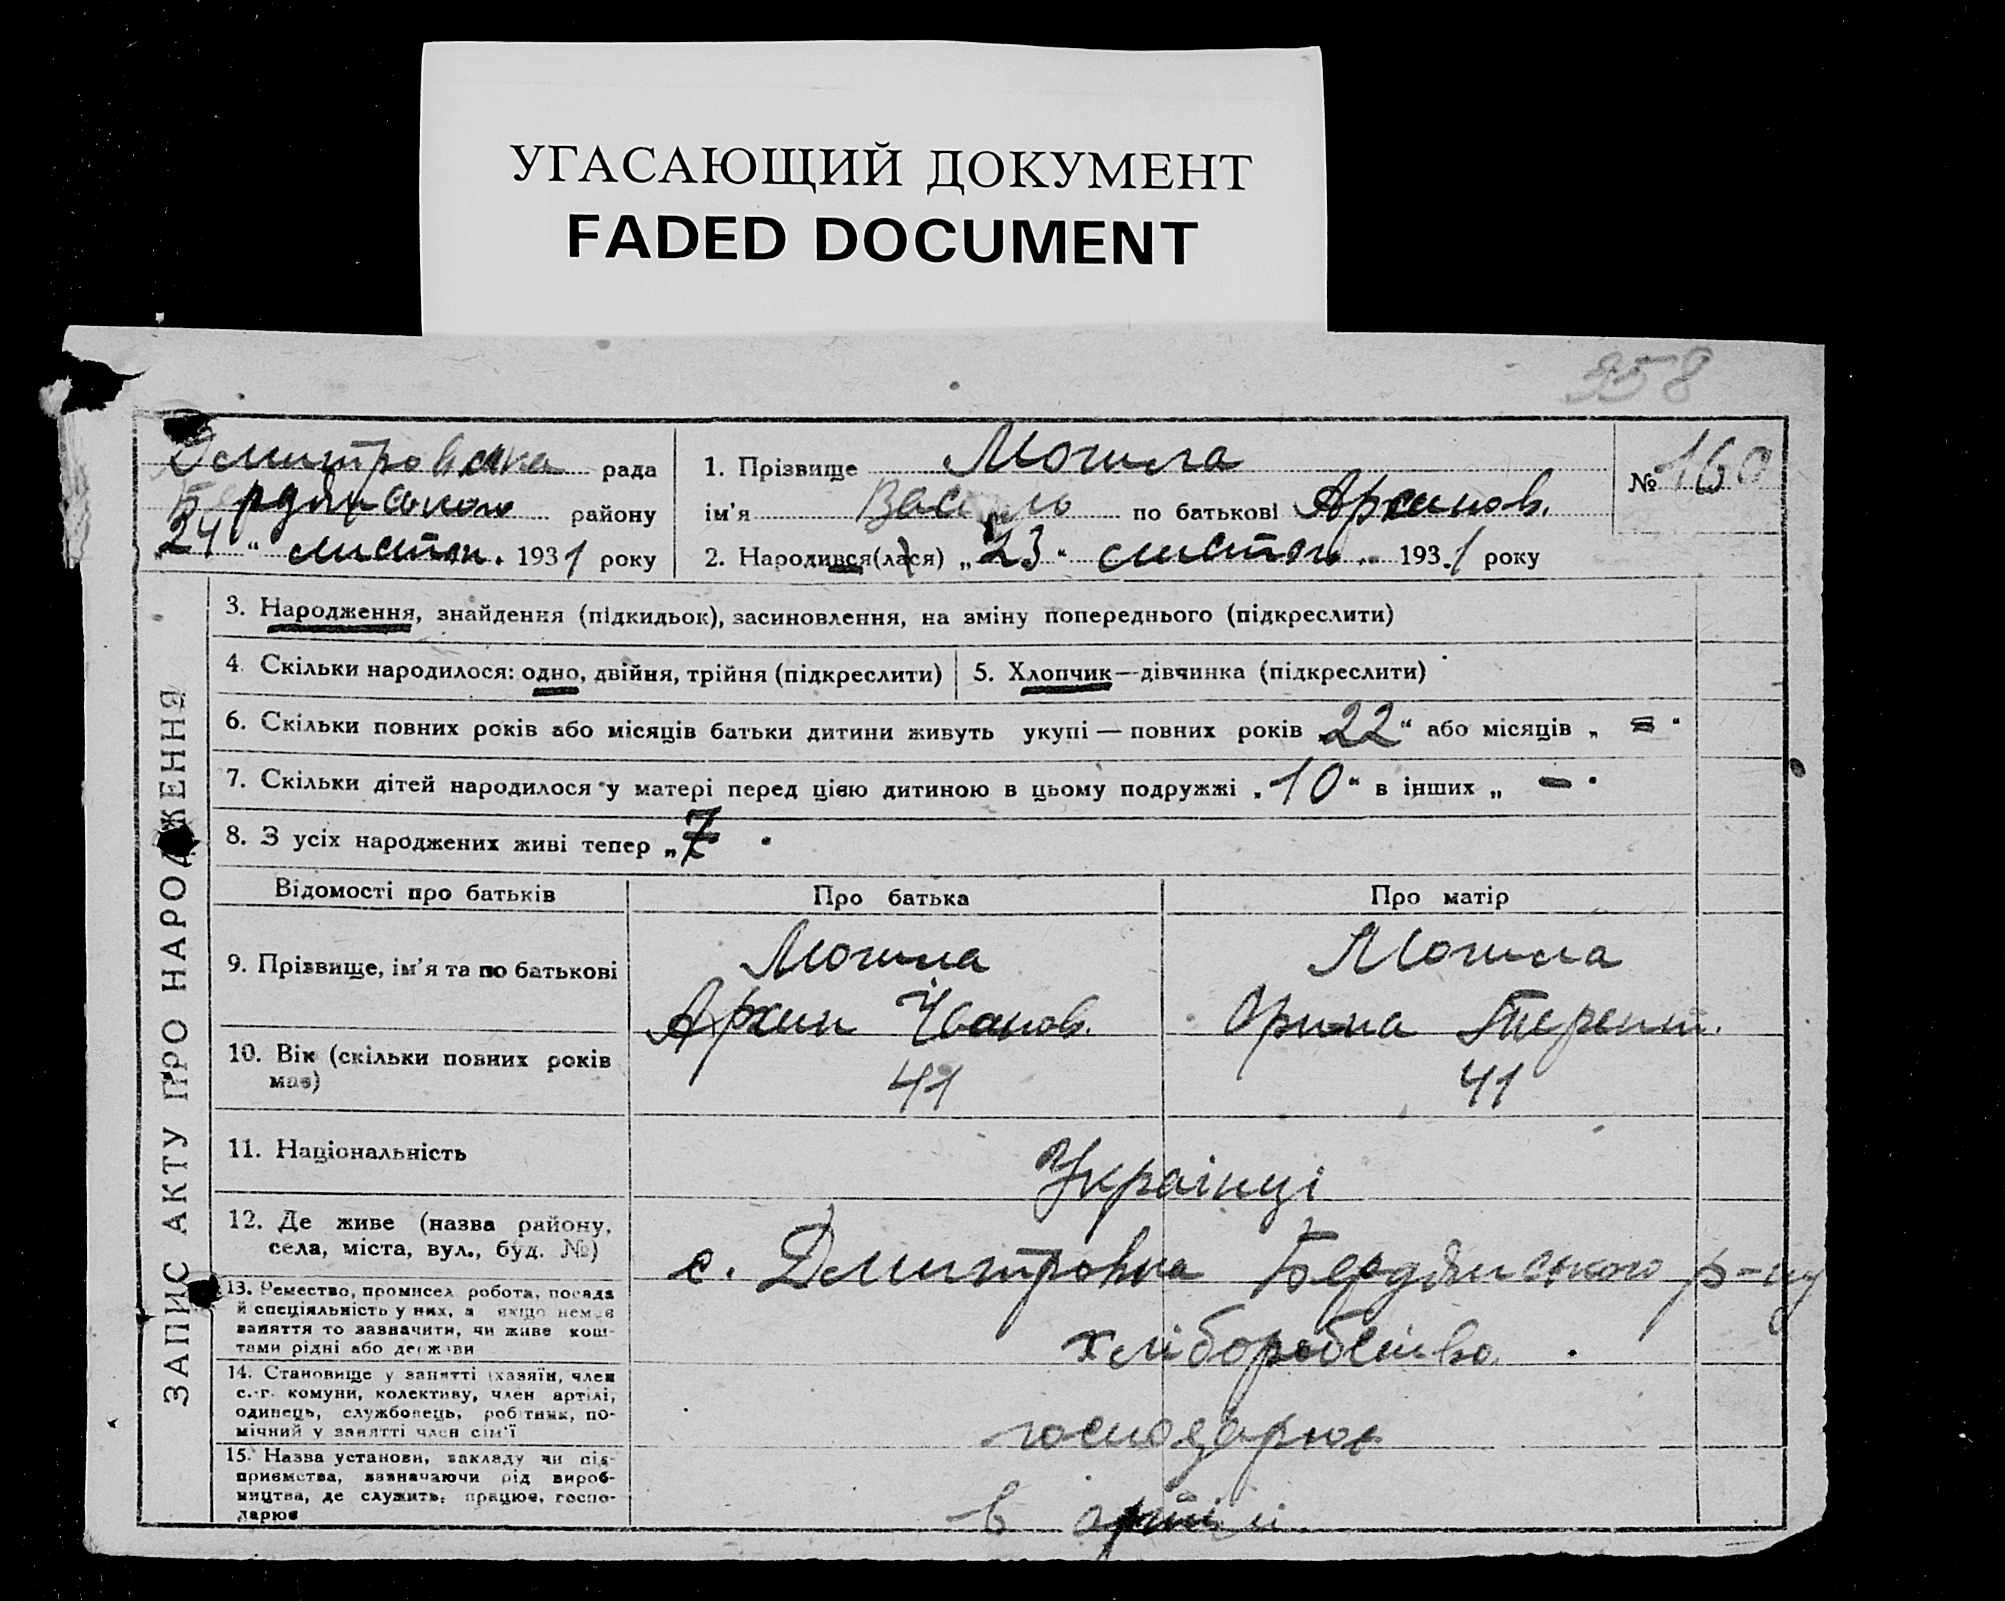 УГАСАЮЩИЙ ДОКУМЕНТ
FADED DOCUMENT
358
Дмитровська рада
Бердянського району
24 " листоп. 1931 року
1. Прізвище Могила
ім'я Василь по батькові Архипов.
№ 160
2. Народився(лася) „ 23 " листоп. 1931 року
ЗАПИС АКТУ ПРО НАРОДЖЕННЯ
3. Народження, знайдення (підкидьок), засиновлення, на зміну попереднього (підкреслити)
4. Скільки народилося: одно, двійня, трійня (підкреслити)
5. Хлопчик—дівчинка (підкреслити)
6. Скільки повних років або місяців батьки дитини живуть укупі — повних років 22 " або місяців „ = "
7. Скільки дітей народилося у матері перед цією дитиною в цьому подружжі „ 10 " в інших „ — "
8. З усіх народжених живі тепер „ 7
Відомості про батьків
Про батька
Про матір
9. Прізвище, ім'я та по батькові
Могила
Архип Іванов.
Могила
Орина Терент.
10. Вік (скільки повних років має)
41
41
11. Національність
Українці
12. Де живе (назва району,
села, міста, вул., буд. №)
с. Дмитровка Бердянського р-ну
13. Ремество, промисел, робота, посада
й спеціяльність у них, а якщо немає
заняття то зазначити, чи живе кош-
тами рідні або держави
хліборобство.
14. Становище у занятті (хазяїн, член
с.-г. комуни, колективу, член артілі,
одинець, службовець, робітник, по-
мічний у занятті член сім'ї
господарює
15. Назва установи, закладу чи під-
приємства, зазначаючи рід вироб-
ництва, де служить, працює, госпо-
дарює
в артілі